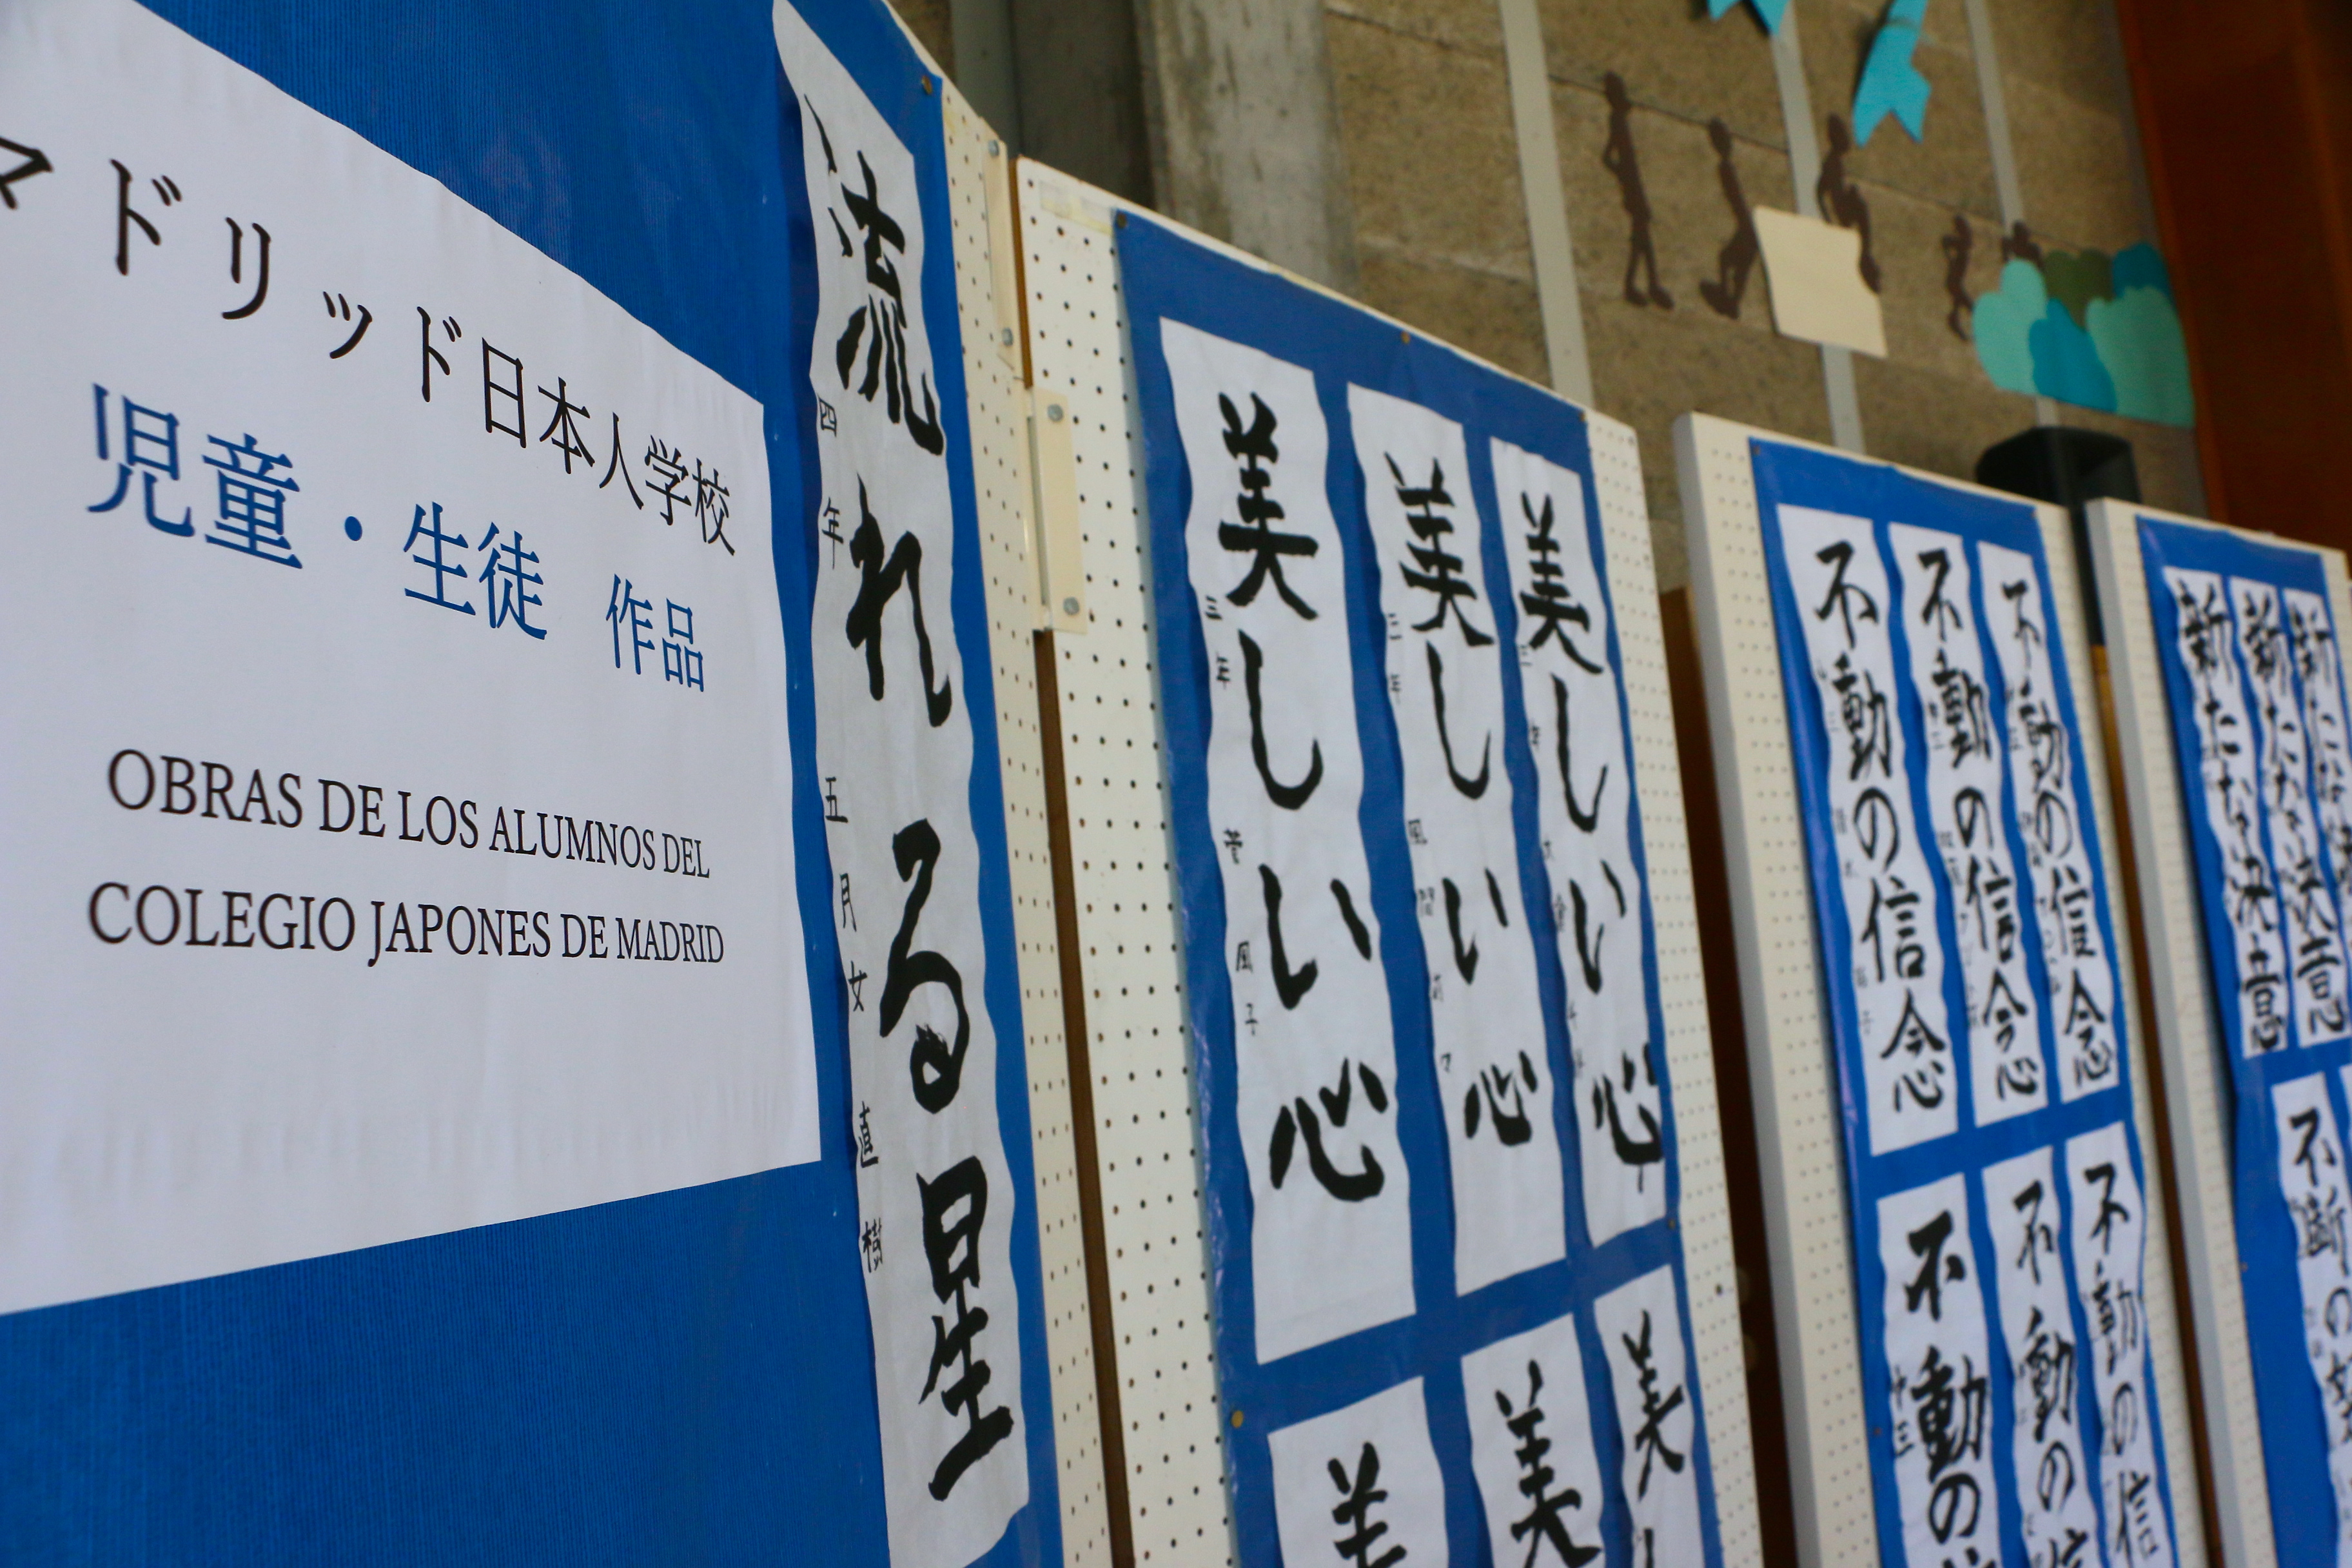 マドリッド日本人学校
児童・生徒 作品
OBRAS DE LOS ALUMNOS DEL
COLEGIO JAPONES DE MADRID
流れる星
四年 五月女 直樹
美しい心
三年 風子
美しい心
三年 風間
美しい心
三年
美
美
美し
不動の信念
不動の信念
不動の信念
不動の
中三
不動の信
不動の信
新たな決意
新たな決意
新たな
不断の